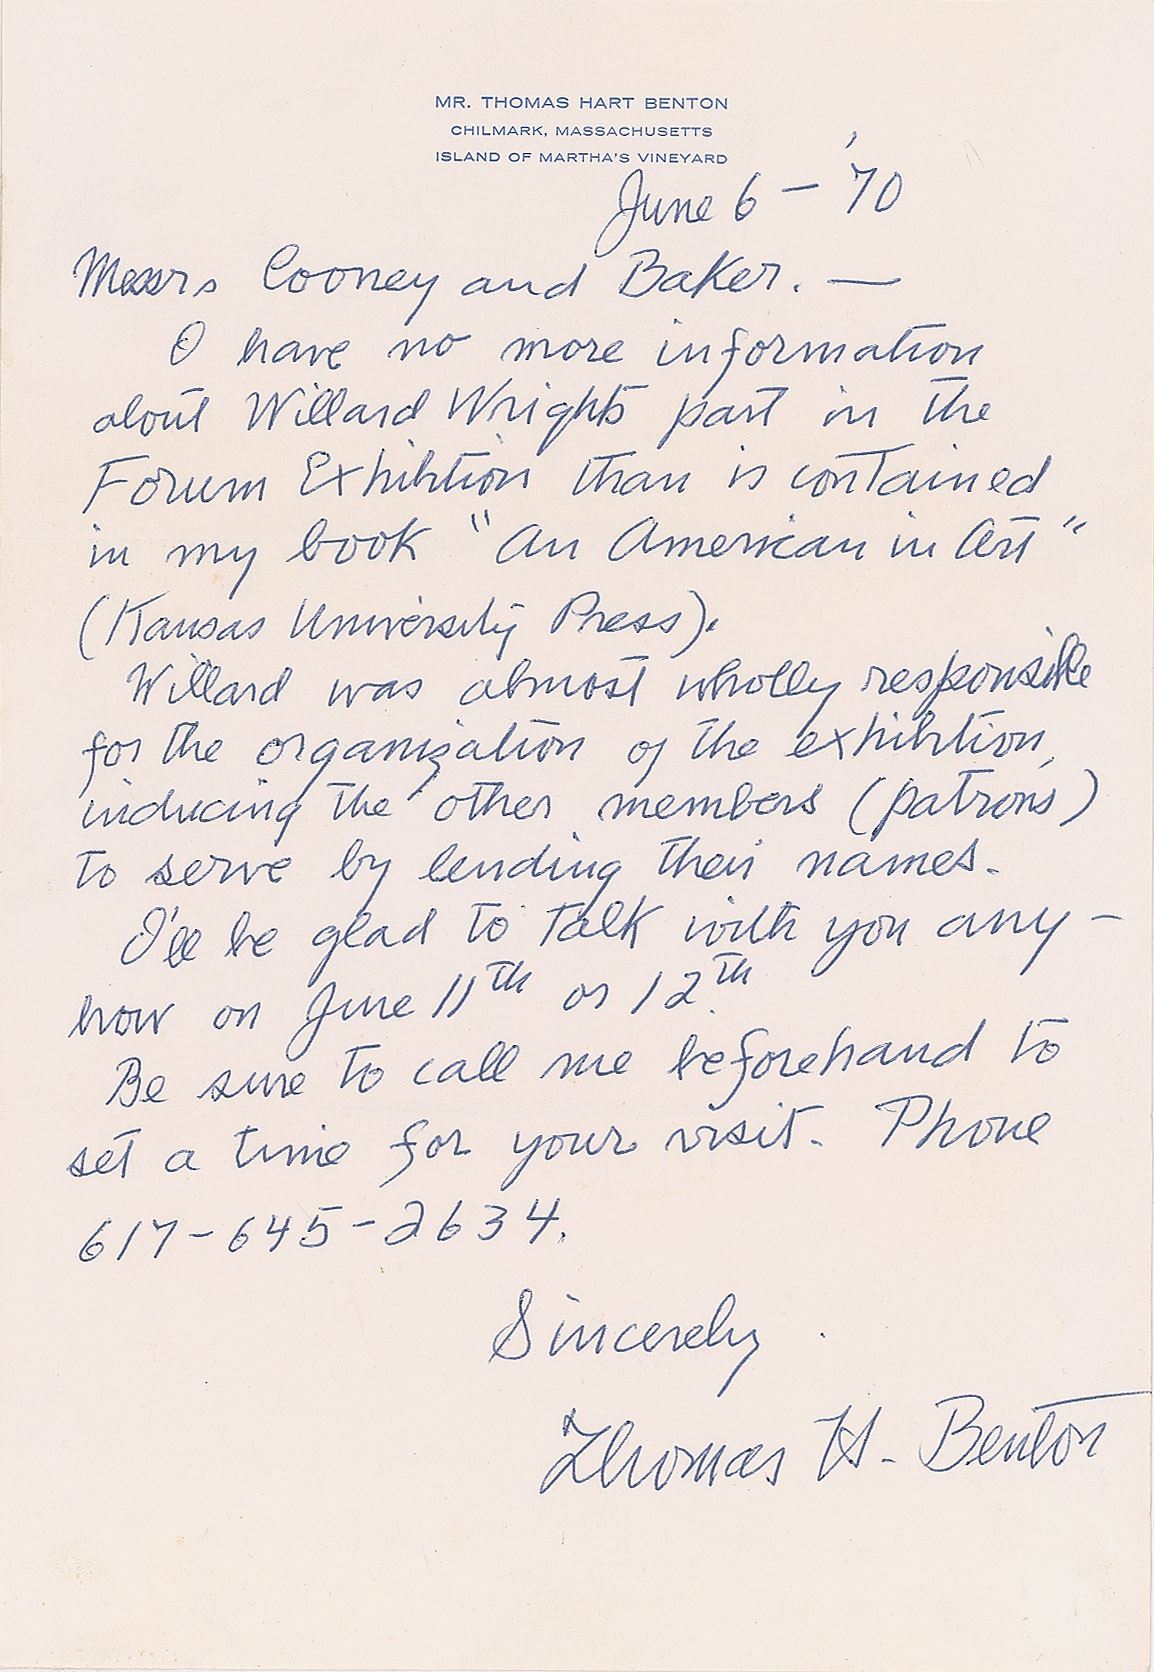 MR. THOMAS HART BENTON
CHILMARK, MASSACHUSETTS
ISLAND OF MARTHA'S VINEYARD
June 6 – '70
Messrs Cooney and Baker. —
I have no more information
about Willard Wrights part in the
Forum Exhibition than is contained
in my book "An American in Art"
(Kansas University Press).
Willard was almost wholly responsible
for the organization of the exhibition,
inducing the other members (patrons)
to serve by lending their names.
I'll be glad to talk with you any-
how on June 11th or 12th.
Be sure to call me beforehand to
set a time for your visit. Phone
617-645-2634.
Sincerely
Thomas H. Benton